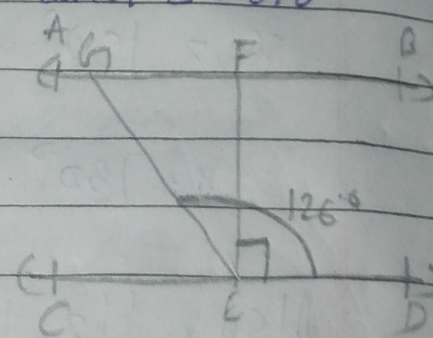 A G F B
126°
C E D